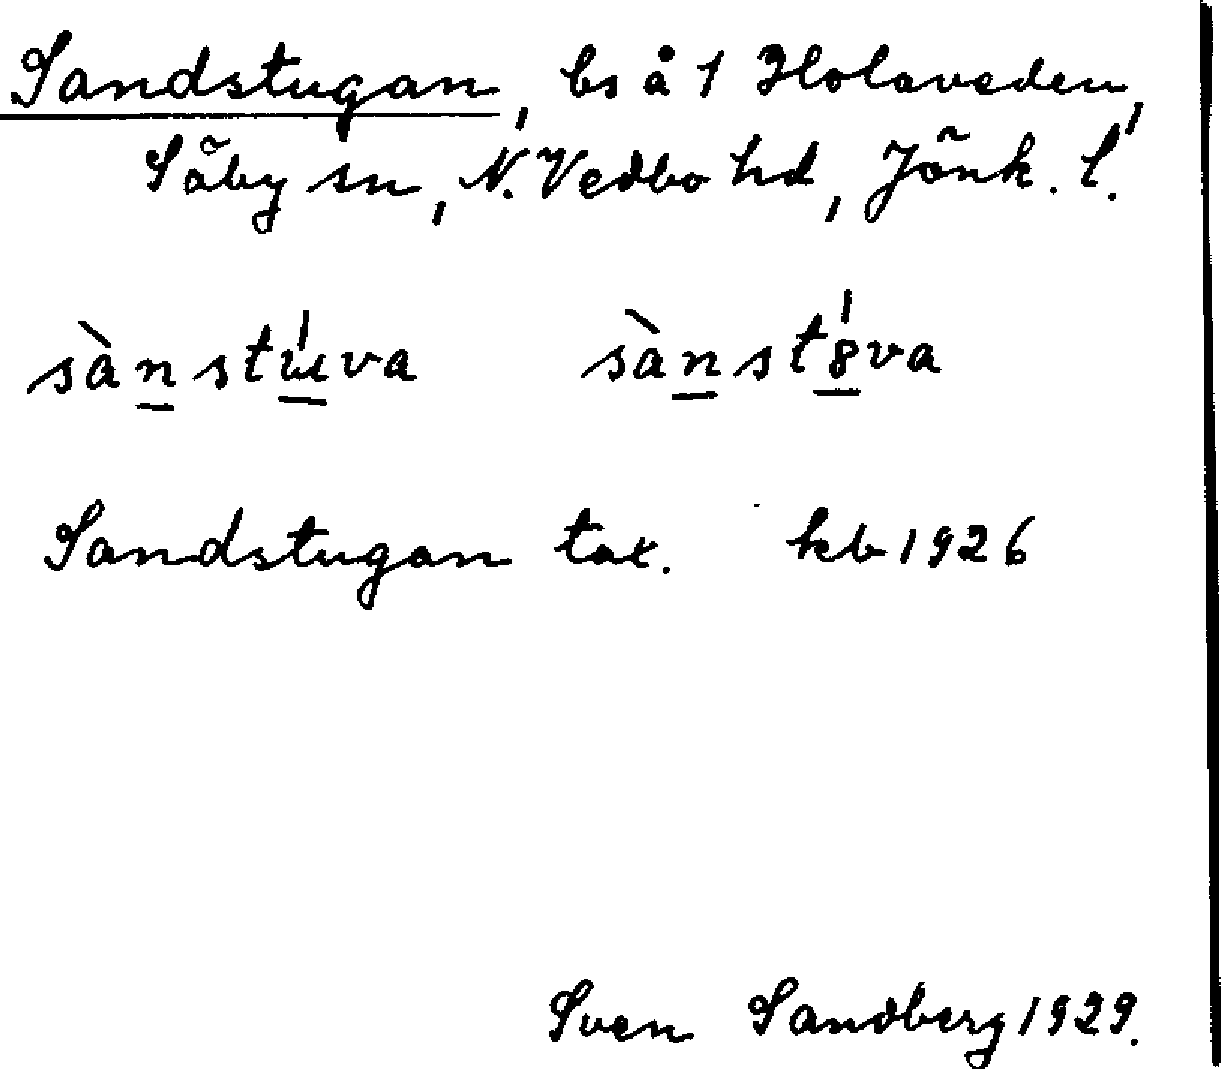 Sandstugan, bs å 1 Holaveden,
Säby sn, N. Vedbo hd, Jönk. l.
sànstúva sànst8́va
Sandstugan tax. kb 1926
Sven Sandberg 1929.